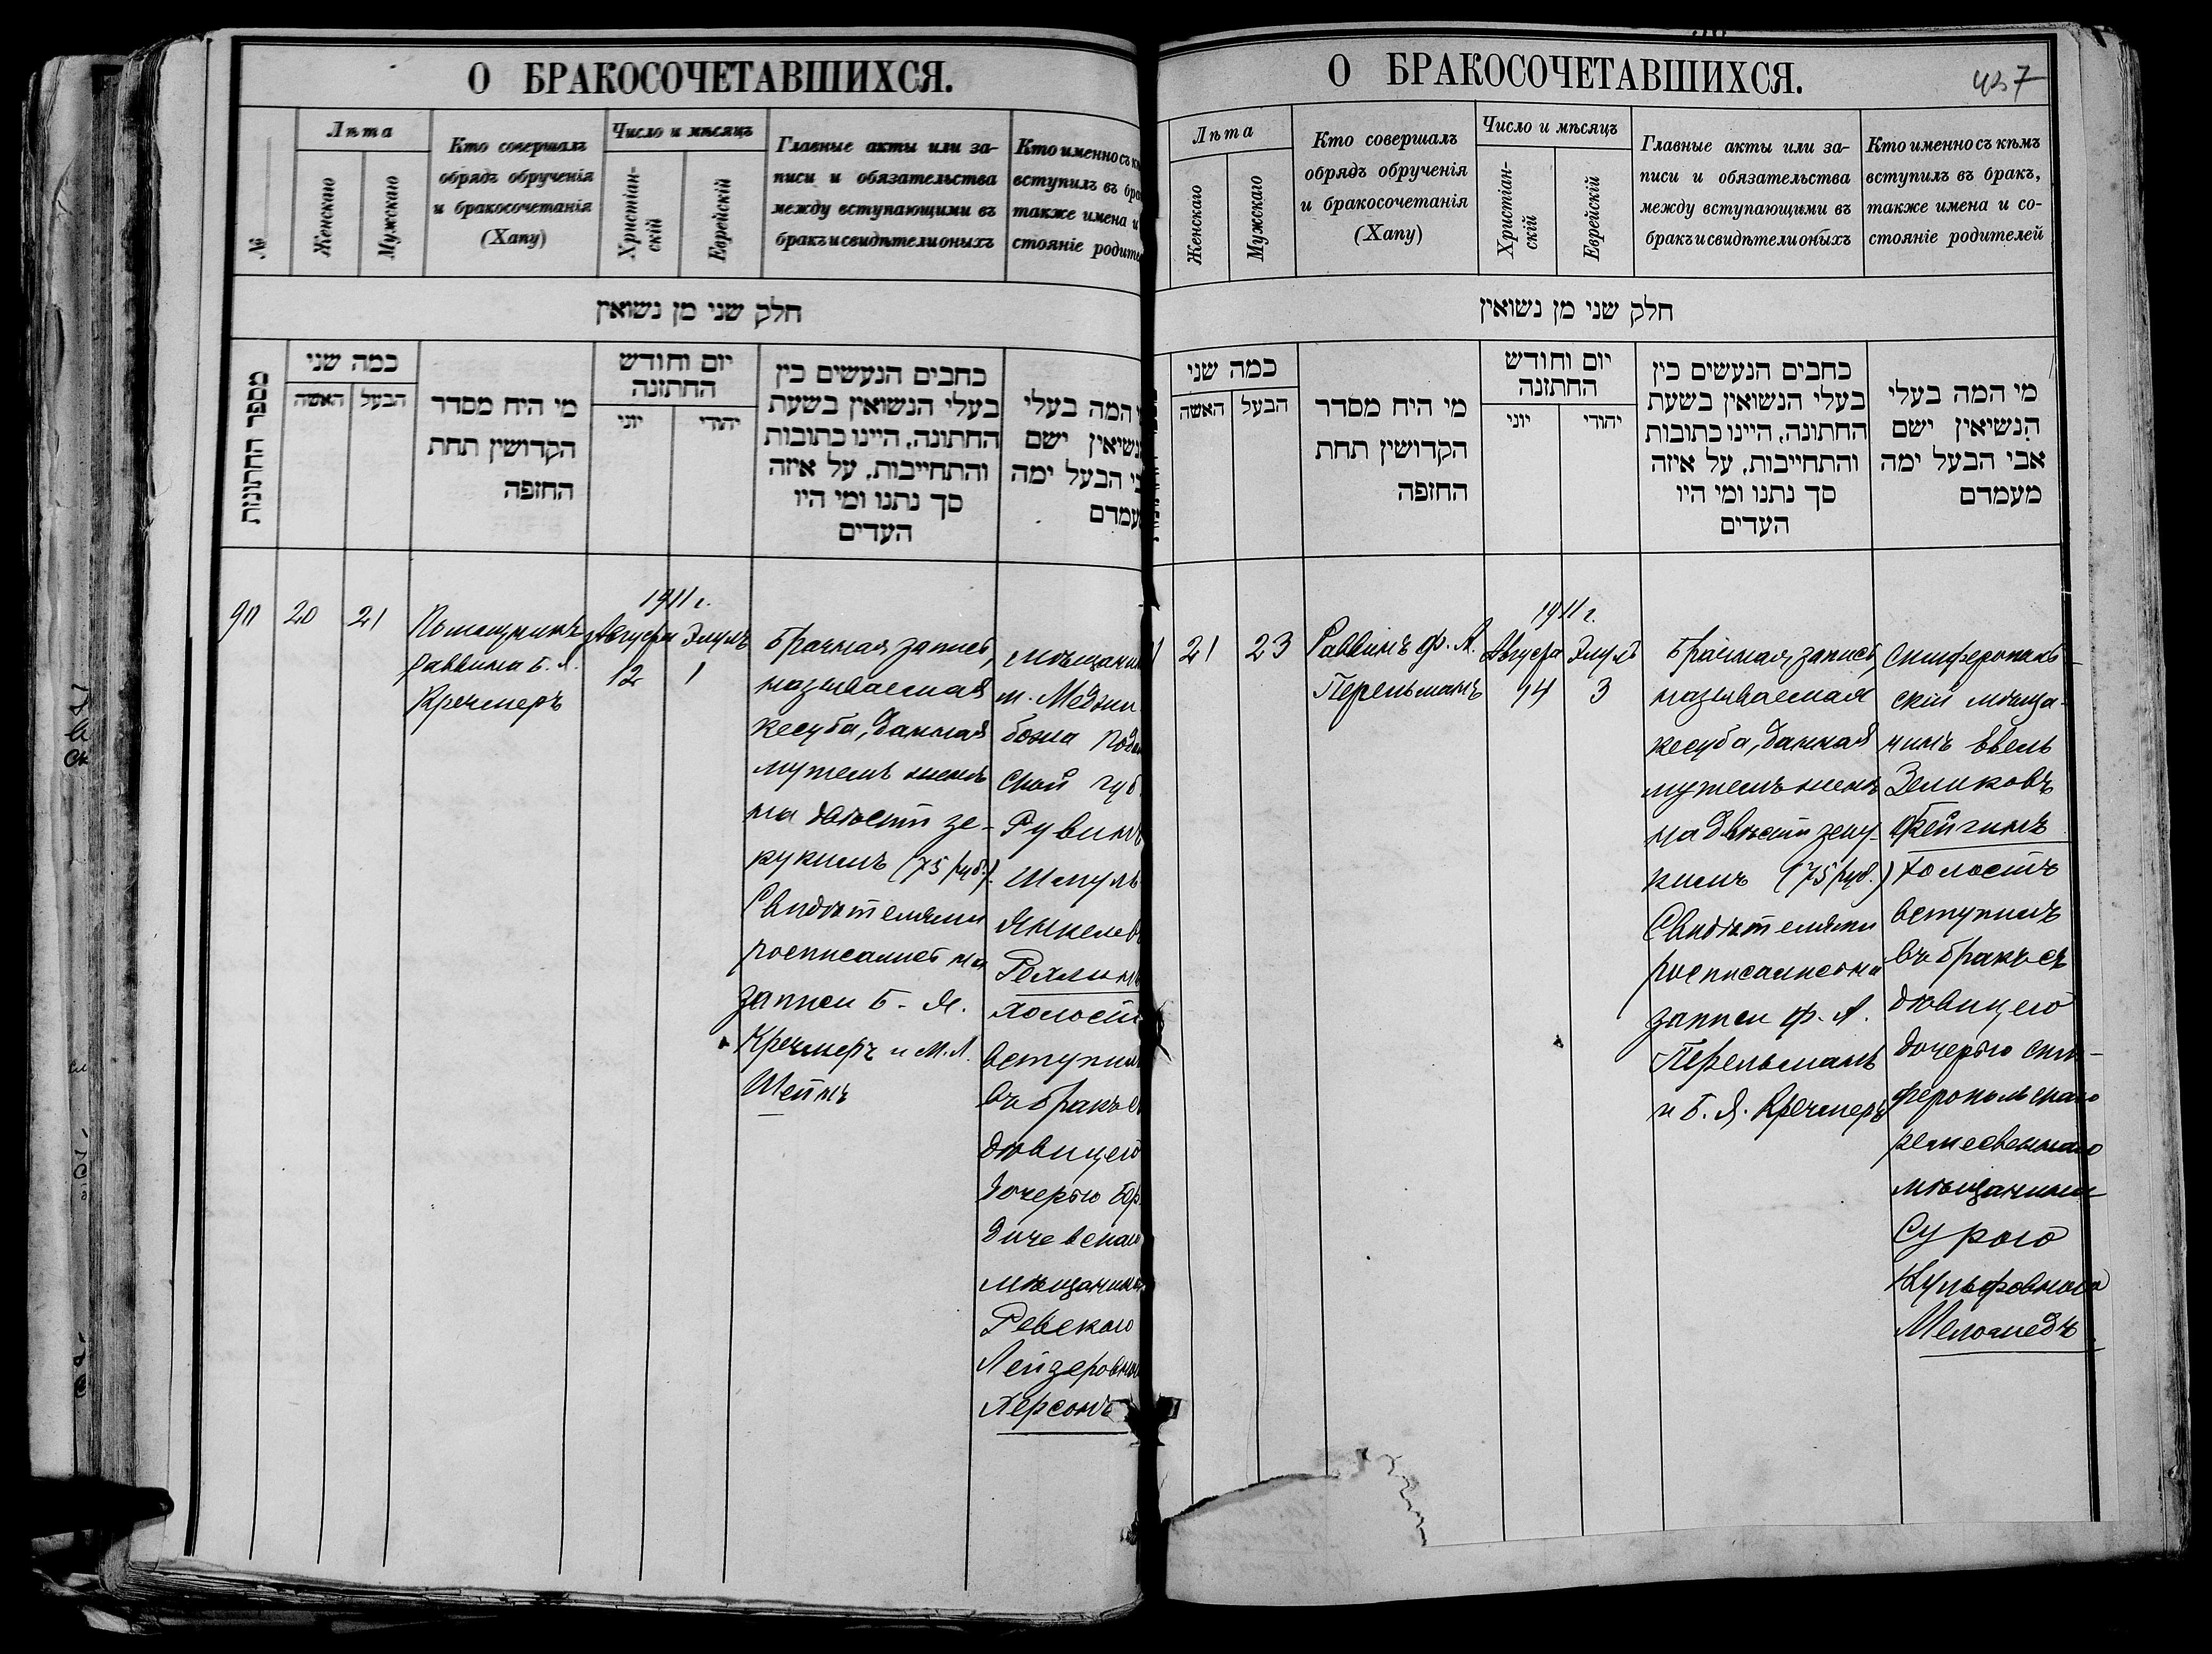 О БРАКОСОЧЕТАВШИХСЯ.
№
Лѣта
Женскаго
Мужскаго
Кто совершалъ
обрядъ обрученія
и бракосочетанія
(Хапу)
Число и мѣсяцъ
Христіан-
скій
Еврейскій
Главные акты или за-
писи и обязательства
между вступающими въ
бракъ и свидѣтели оныхъ
Кто именно съ
вступилъ въ
также имена и
стояніе
חלק שני מן נשואין
מספר החתונות
כמה שני
האשה
הבעל
מי היח מסדר
הקדושין תחת
החזפה
יום וחודש
החתונה
יוני
יהודי
כחבים הנעשים כין
בעלי הנשואין בשעת
החתונה, היינו כתובות
והתחייבות, על איזה
סך נתנו ומי היו
העדים
המה בעלי
ישם
הבעל ימה
90
20
21
Помощникъ
раввина Б. Я.
Кречмеръ
1911 г.
Августа
12
Элулъ
1
Брачная запись,
называемая
кесуба, данная
мужемъ женѣ
на двѣсти зе-
кукимъ (75 руб.).
Свидѣтелями
росписались на
записи Б. Я.
Кречмеръ и М. Л.
Штейнъ
мѣщанин
м. Меджи
божа Подол
ской губ.
Рувинъ
Шмуль
Янкелев
Рехлинъ
холостъ
вступилъ
въ бракъ съ
дѣвицею
дочерью Бер
дичевскаго
мѣщанина
Ревекою
Лейзеровною
Херсонъ
О БРАКОСОЧЕТАВШИХСЯ.
437
Лѣта
Женскаго
Мужскаго
Кто совершалъ
обрядъ обрученія
и бракосочетанія
(Хапу)
Число и мѣсяцъ
Христіан-
скій
Еврейскій
Главные акты или за-
писи и обязательства
между вступающими въ
бракъ и свидѣтели оныхъ
Кто именно съ кѣмъ
вступилъ въ бракъ,
также имена и со-
стояніе родителей
חלק שני מן נשואין
כמה שני
האשה
הבעל
מי היח מסדר
הקדושין תחת
החזפה
יום וחודש
החתונה
יוני
יהודי
כחבים הנעשים כין
בעלי הנשואין בשעת
החתונה, היינו כתובות
והתחייבות, על איזה
סך נתנו ומי היו
העדים
מי המה בעלי
הנשיאין ישם
אבי הבעל ימה
מעמדם
21
23
Раввинъ Ф. А.
Перельманъ
1911 г.
Августа
14
Элулъ
3
Брачная запись,
называемая
кесуба, данная
мужемъ женѣ
на двѣсти зеку-
кимъ (75 руб.)
Свидѣтелями
росписались на
записи Ф. А.
Перельманъ
и Б. Я. Кречмеръ
Симферополь-
скій мѣща-
нинъ Евель
Зеликовъ
Фейгинъ
холостъ
вступилъ
въ бракъ съ
дѣвицею
дочерью сим-
феропольскаго
ремесленнаго
мѣщанина
Сурою
Вульфовною
Меламедъ